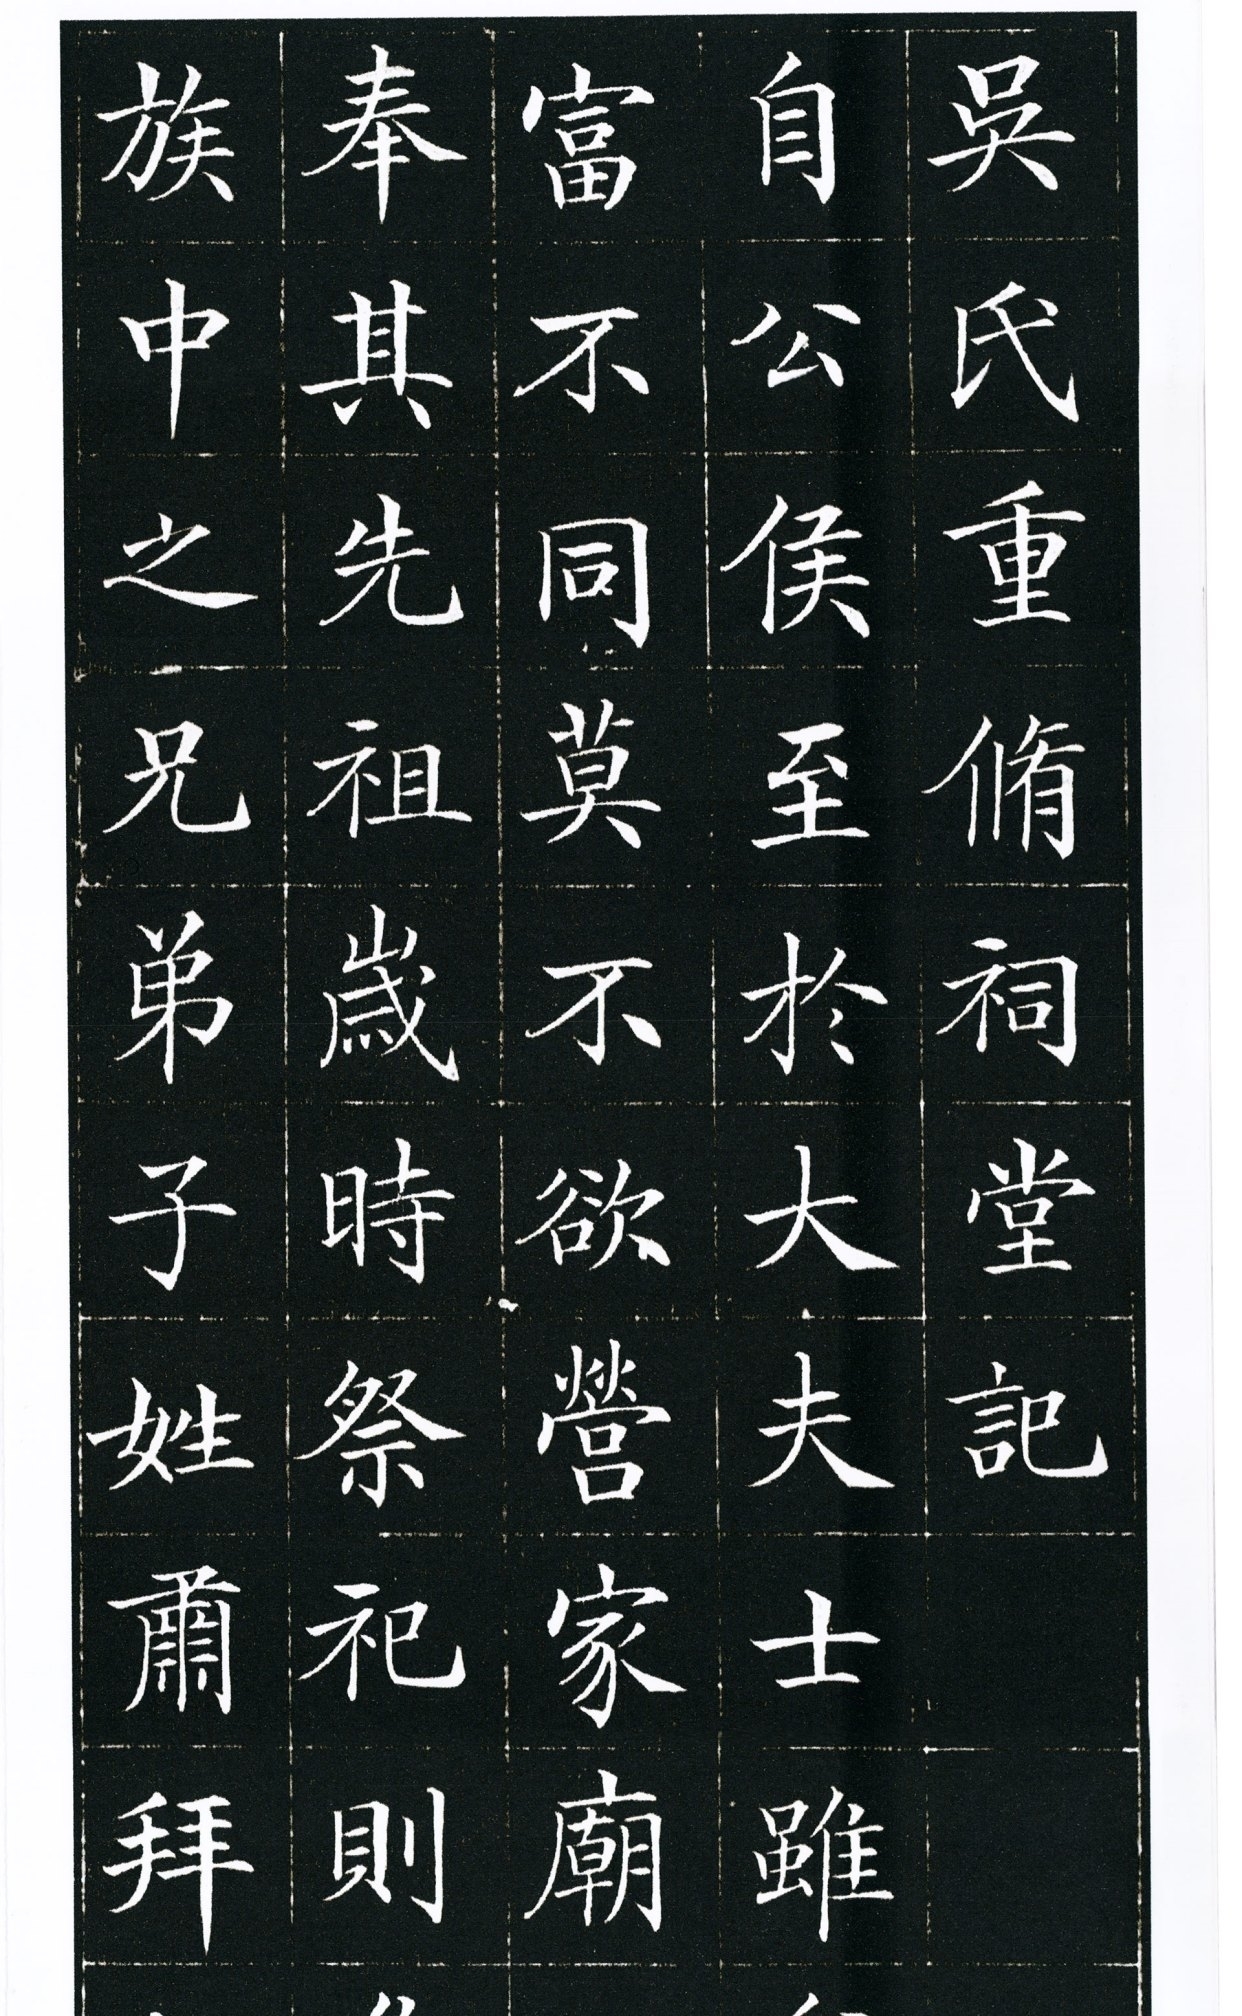 吳氏重脩祠堂記
自公侯至於大夫士雖
富不同莫不欲營家廟
奉其先祖歲時祭祀則
族中之兄弟子姓肅拜